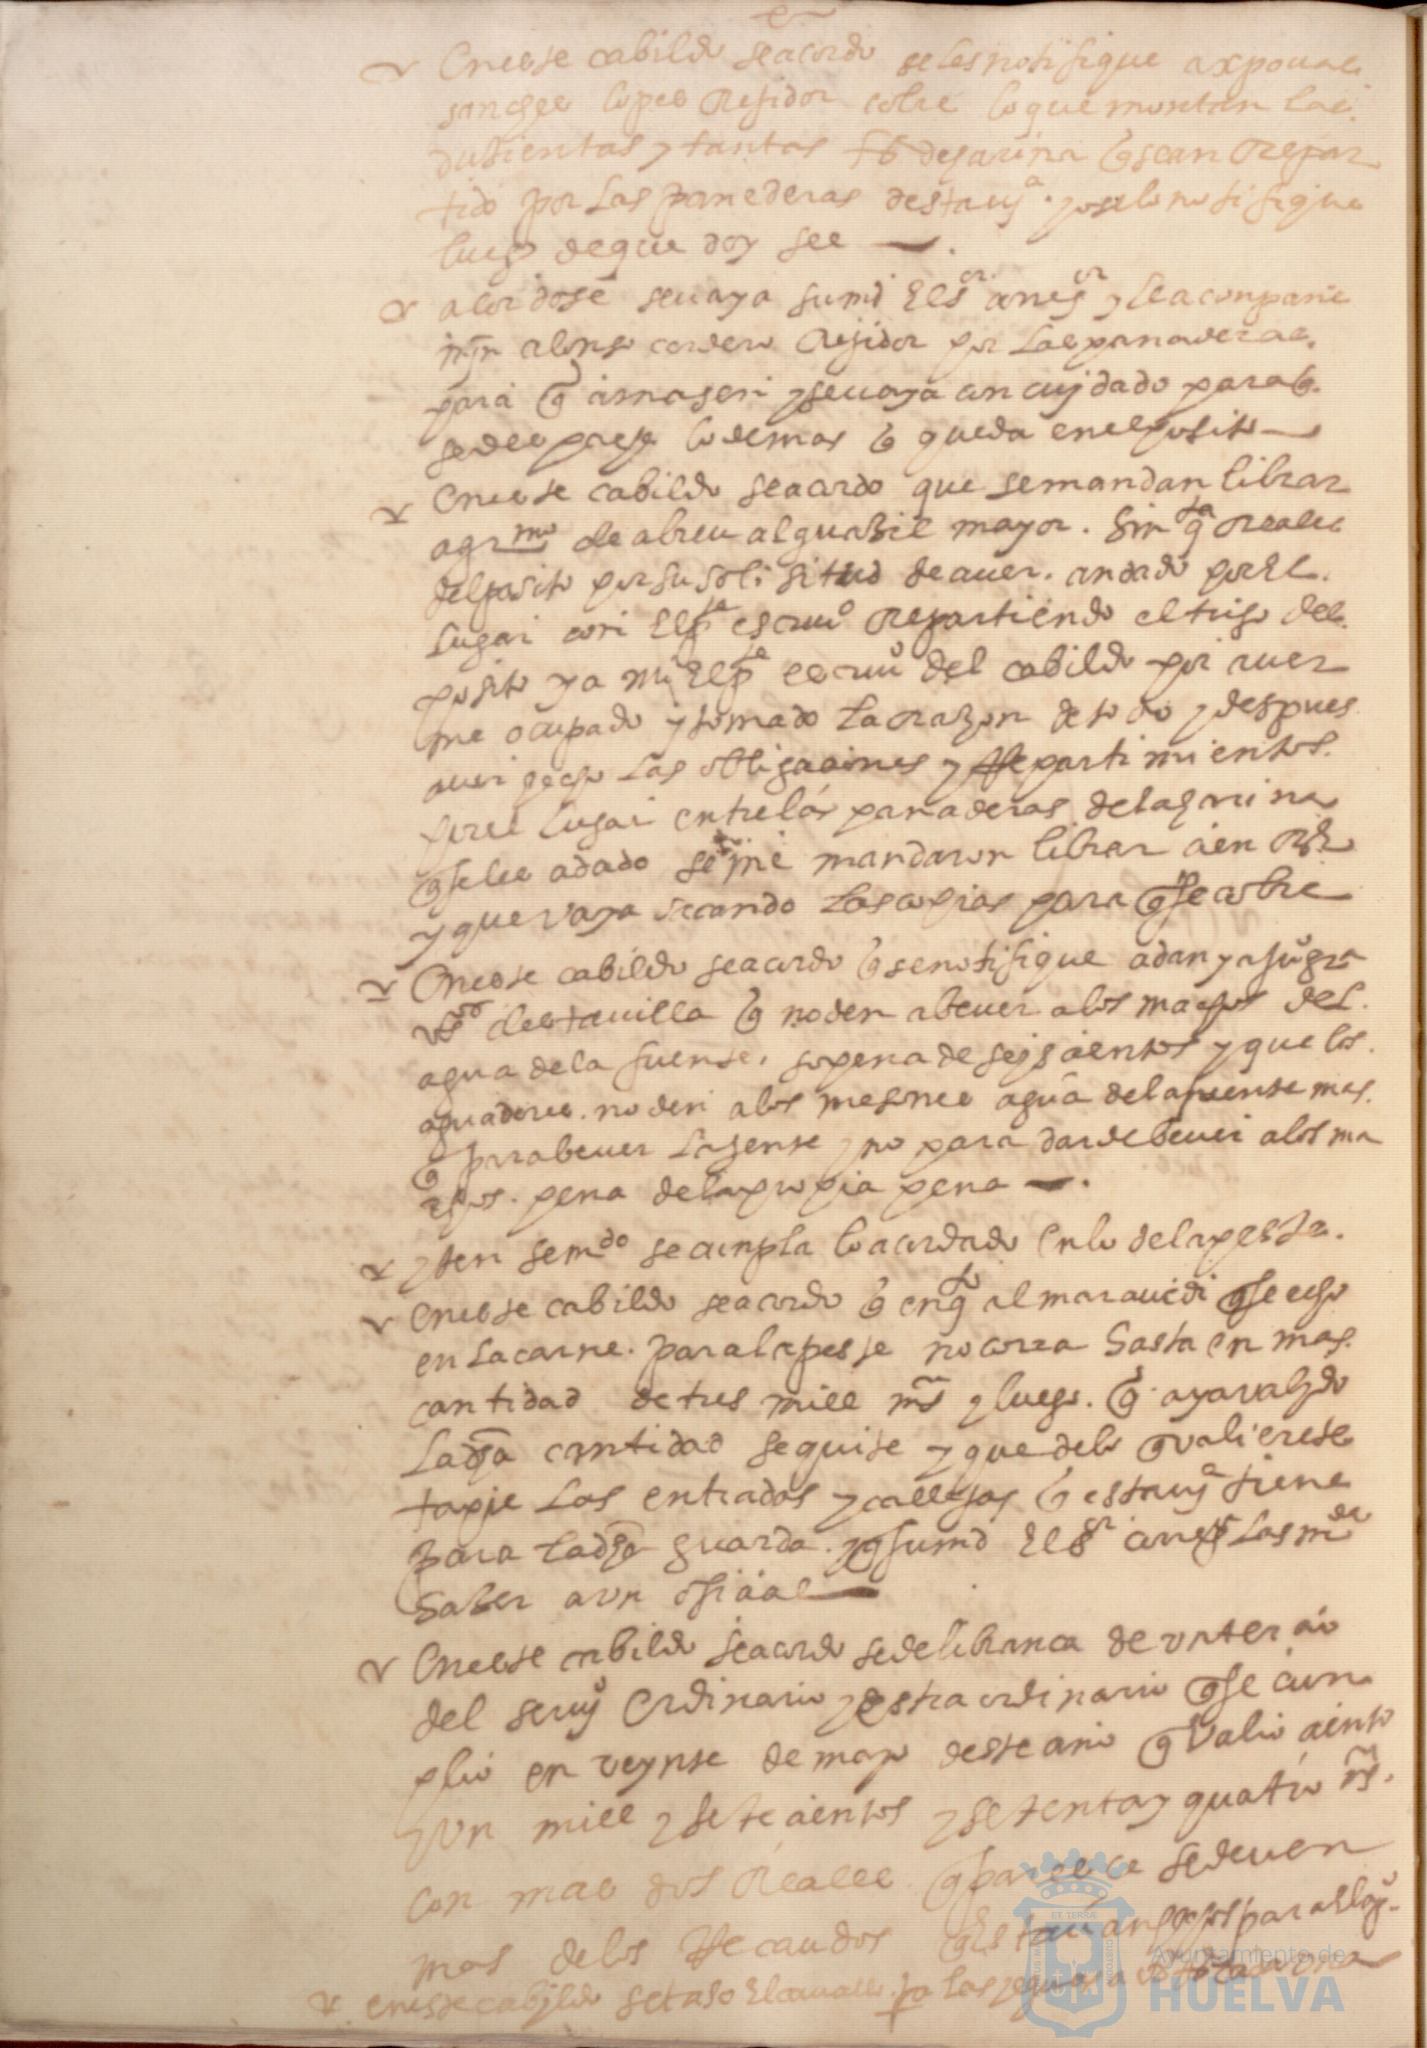 En este cabildo se acordo se les notifique a xpoual
sanches lopes Rejidor cobre lo que montan las
dusientas y tantas de harina q sean Repar
tido por las panederas desta uᵃ y se lo notifique
luego de que doy fee
acordose se uaya su md El sᵒʳ corregᵒʳ y le acompañe
alonso cordero Rejidor por las panaderas
para q amasen y se uaya con cuydado para q
se despache lo demas q queda en el posito
En este cabildo se acordo que se mandan librar
a grmᵒ de abreu alguasil mayor. Sinqᵗᵃ Reales
del posito por su solisitud de auer. andado por El
lugar con El pᵗᵉ escriuᵒ Repartiendo el trigo del
posito y a mi El pᵗᵉ escriuᵒ del cabildo por auer
me ocupado y tomado la rrazon de todo y despues
auer hecho las obligaciones y Repartimientos
por el lugar entre las panaderas de la harina
q se les a dado se me mandaron librar cien Rˢ
y que vaya sacando las copias para q se cobre
En este cabildo se acordo q se notifique a dan y a juᵒ gra
vᵒˢ desta uilla q no den a beuer a los machos del
agua de la fuente, so pena de seys cientos y que los
aguadores. no den a los mesones agua de la fuente mas
q para beuer la gente y no para dar de beuer a los ma
chos. pena de la propia pena
yten se mᵈᵒ se cunpla lo acordado en lo de la peste.
En este cabildo se acordo q en qᵗᵒ al marauedi q se echo
en la carne. para la peste no corra hasta en mas
cantidad de tres mill ms y luego. q aya valydo
la dha cantidad se quite y que de lo q valiere se
tapie las entradas y callejas q esta uᵃ tiene
para la dha guarda. y q su md El sʳ corregʳ las mᵈᵉ
haser a vn ofiçial
En este cabildo se acordo se de libranca de vn tercio
del seruᵒ Ordinario y estraordinario q se cun
plio en veynte de mayo deste año q valio ciento
y vn mill y setecientos y setenta y quatro ms.
con mas dos Reales. q parece se deuen
mas de los Recaudos
en este cabildo se taso El cauallo pᵃ las yeguas a
Ayuntamiento de
HUELVA